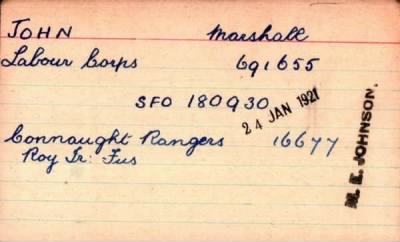 JOHN Marshall
Labour Corps 691655
SFO 180930
24 JAN 1921
Connaught Rangers 16677
Roy Ir: Fus
M. E. JOHNSON.